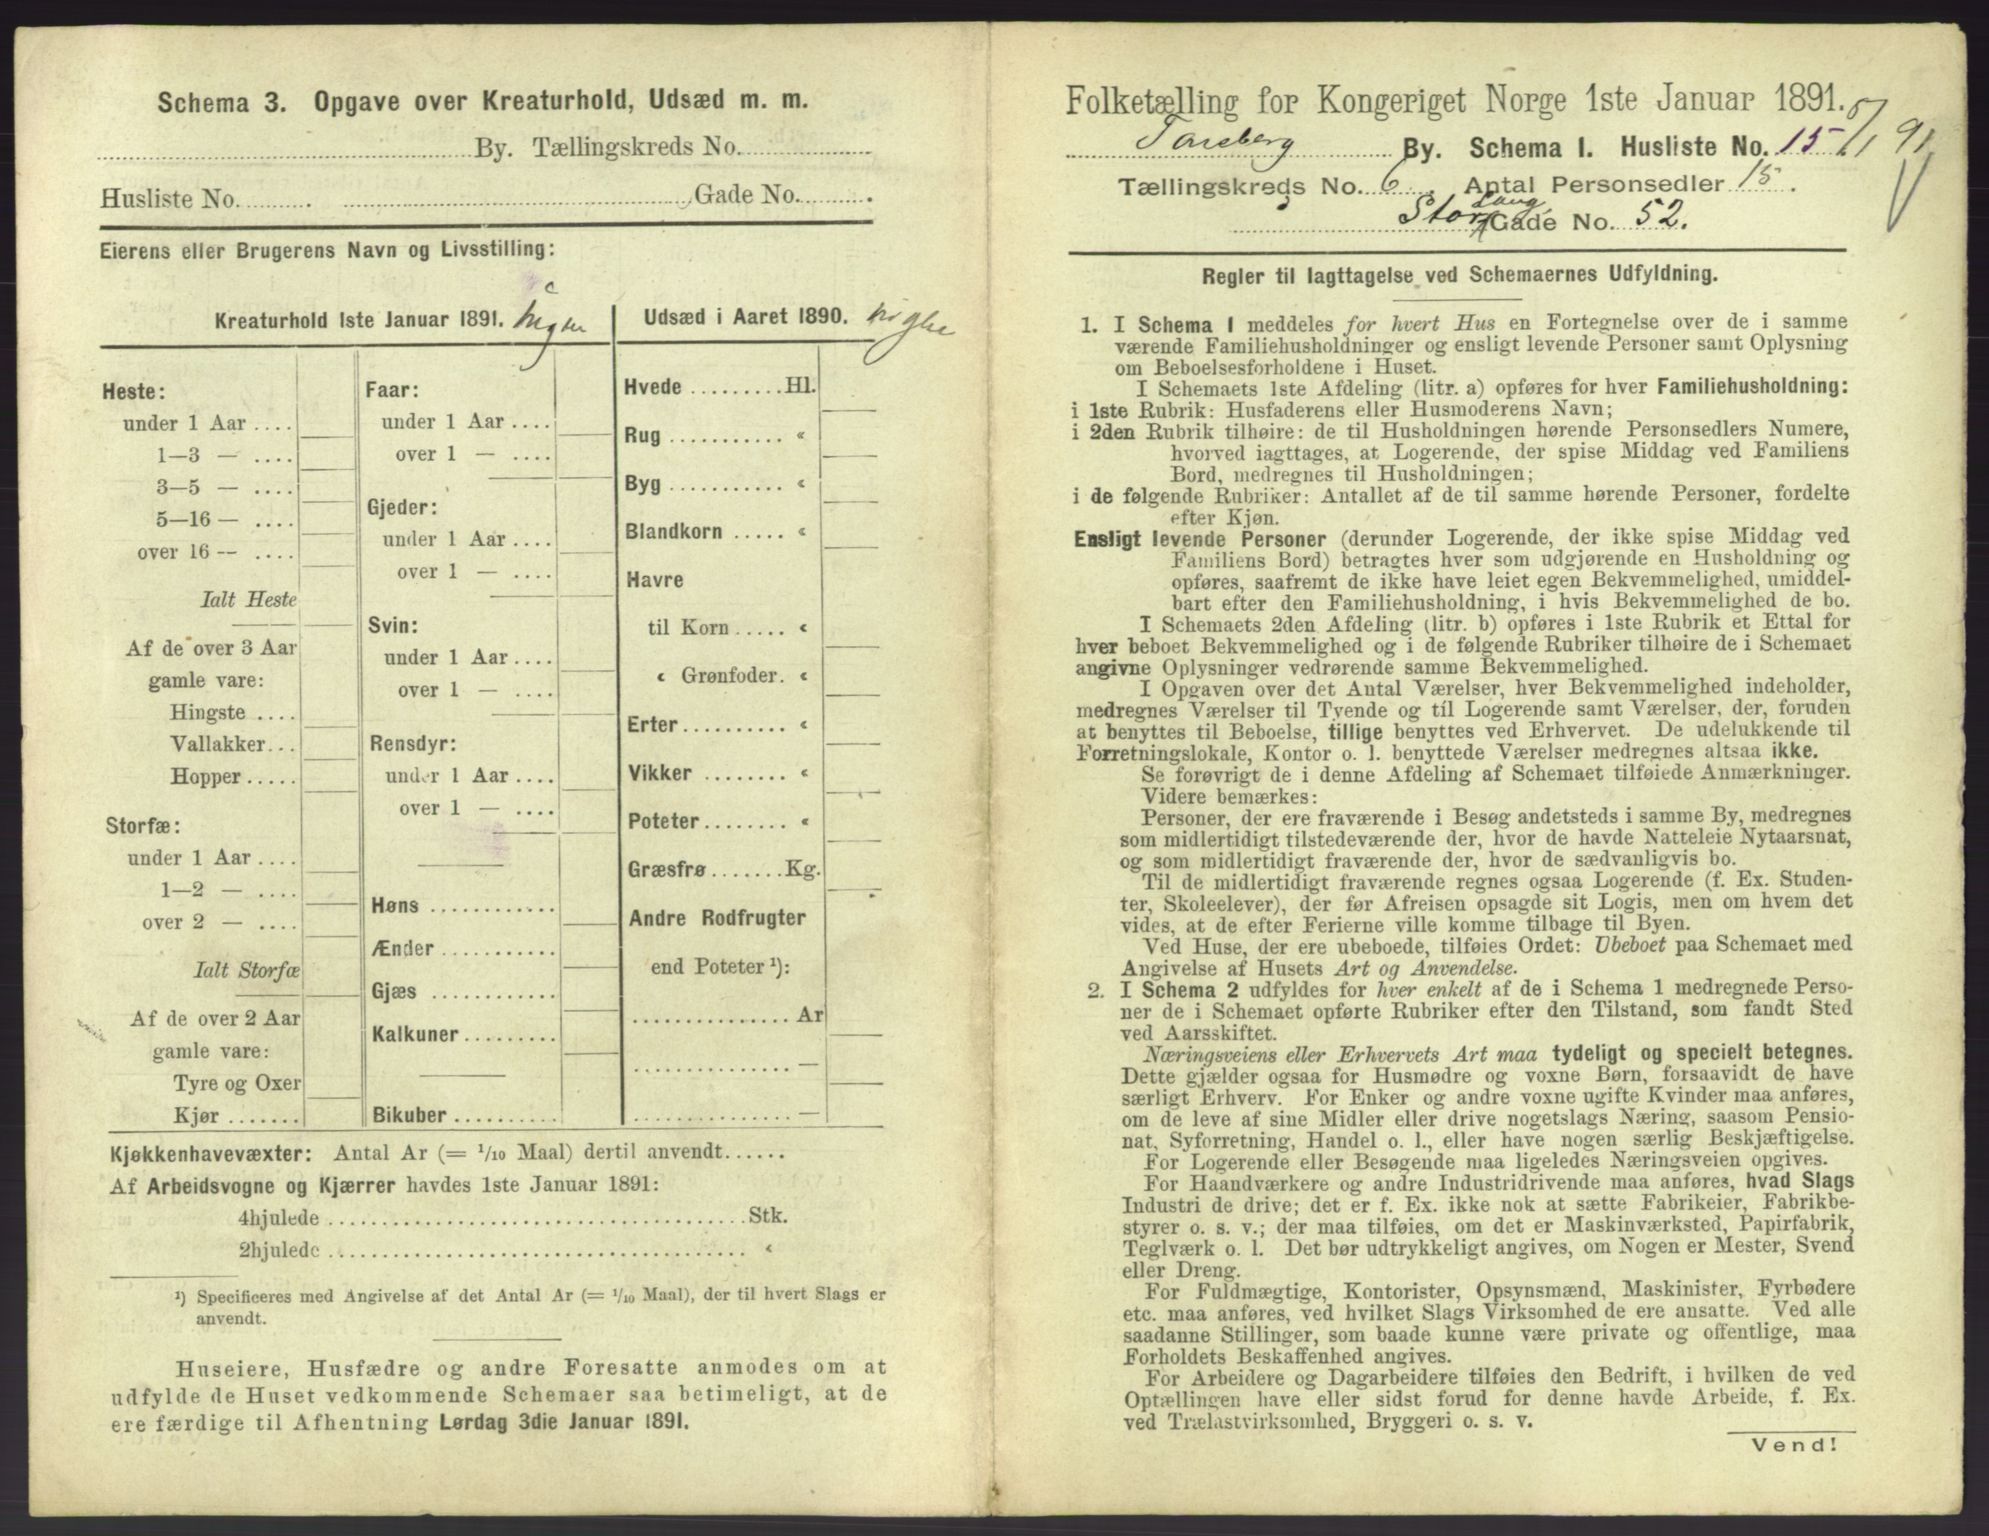 Schema 3. Opgave over Kreaturhold, Udsæd m. m.
By. Tællingskreds No.
Husliste No. Gade No.
Eierens eller Brugerens Navn og Livsstilling:
Kreaturhold 1ste Januar 1891. Ingen
Heste:
under 1 Aar ....
1—3 — ....
3—5 — ....
5—16 — ....
over 16 — ....
Ialt Heste
Af de over 3 Aar
gamle vare:
Hingste ....
Vallakker...
Hopper .....
Storfæ:
under 1 Aar ....
1—2 — ....
over 2 — ....
Ialt Storfæ
Af de over 2 Aar
gamle vare:
Tyre og Oxer
Kjør .......
Faar:
under 1 Aar ....
over 1 — ....
Gjeder:
under 1 Aar ....
over 1 — ....
Svin:
under 1 Aar ....
over 1 — ....
Rensdyr:
under 1 Aar ....
over 1 — ....
Høns ............
Ænder ...........
Gjæs ............
Kalkuner .........
Bikuber ..........
Udsæd i Aaret 1890.
Hvede .........Hl.
Rug ........... «
Byg ........... «
Blandkorn ..... «
Havre
til Korn ..... «
« Grønfoder. «
Erter .......... «
Vikker ........ «
Poteter ........ «
Græsfrø .......Kg.
Andre Rodfrugter
end Poteter ¹):
............... Ar
............... —
............... —
Kjøkkenhavevæxter: Antal Ar (= 1/10 Maal) dertil anvendt......
Af Arbeidsvogne og Kjærrer havdes 1ste Januar 1891:
4hjulede ....................................... Stk.
2hjulede ....................................... «
¹) Specificeres med Angivelse af det Antal Ar (= 1/10 Maal), der til hvert Slags er
anvendt.
Huseiere, Husfædre og andre Foresatte anmodes om at
udfylde de Huset vedkommende Schemaer saa betimeligt, at de
ere færdige til Afhentning Lørdag 3die Januar 1891.
Folketælling for Kongeriget Norge 1ste Januar 1891.
Tønsberg By. Schema I. Husliste No. 15
Tællingskreds No. 6. Antal Personsedler 15.
Stor Lang Gade No. 52.
Regler til Iagttagelse ved Schemaernes Udfyldning.
1. I Schema 1 meddeles for hvert Hus en Fortegnelse over de i samme
værende Familiehusholdninger og ensligt levende Personer samt Oplysning
om Beboelsesforholdene i Huset.
I Schemaets 1ste Afdeling (litr. a) opføres for hver Familiehusholdning:
i 1ste Rubrik: Husfaderens eller Husmoderens Navn;
i 2den Rubrik tilhøire: de til Husholdningen hørende Personsedlers Numere,
hvorved iagttages, at Logerende, der spise Middag ved Familiens
Bord, medregnes til Husholdningen;
i de følgende Rubriker: Antallet af de til samme hørende Personer, fordelte
efter Kjøn.
Ensligt levende Personer (derunder Logerende, der ikke spise Middag ved
Familiens Bord) betragtes hver som udgjørende en Husholdning og
opføres, saafremt de ikke have leiet egen Bekvemmelighed, umiddel-
bart efter den Familiehusholdning, i hvis Bekvemmelighed de bo.
I Schemaets 2den Afdeling (litr. b) opføres i 1ste Rubrik et Ettal for
hver beboet Bekvemmelighed og i de følgende Rubriker tilhøire de i Schemaet
angivne Oplysninger vedrørende samme Bekvemmelighed.
I Opgaven over det Antal Værelser, hver Bekvemmelighed indeholder,
medregnes Værelser til Tyende og til Logerende samt Værelser, der, foruden
at benyttes til Beboelse, tillige benyttes ved Erhvervet. De udelukkende til
Forretningslokale, Kontor o. l. benyttede Værelser medregnes altsaa ikke.
Se forøvrigt de i denne Afdeling af Schemaet tilføiede Anmærkninger.
Videre bemærkes:
Personer, der ere fraværende i Besøg andetsteds i samme By, medregnes
som midlertidigt tilstedeværende der, hvor de havde Natteleie Nytaarsnat,
og som midlertidigt fraværende der, hvor de sædvanligvis bo.
Til de midlertidigt fraværende regnes ogsaa Logerende (f. Ex. Studen-
ter, Skoleelever), der før Afreisen opsagde sit Logis, men om hvem det
vides, at de efter Ferierne ville komme tilbage til Byen.
Ved Huse, der ere ubeboede, tilføies Ordet: Ubeboet paa Schemaet med
Angivelse af Husets Art og Anvendelse.
2. I Schema 2 udfyldes for hver enkelt af de i Schema 1 medregnede Perso-
ner de i Schemaet opførte Rubriker efter den Tilstand, som fandt Sted
ved Aarsskiftet.
Næringsveiens eller Erhvervets Art maa tydeligt og specielt betegnes.
Dette gjælder ogsaa for Husmødre og voxne Børn, forsaavidt de have
særligt Erhverv. For Enker og andre voxne ugifte Kvinder maa anføres,
om de leve af sine Midler eller drive nogetslags Næring, saasom Pensio-
nat, Syforretning, Handel o. l., eller have nogen særlig Beskjæftigelse.
For Logerende eller Besøgende maa ligeledes Næringsveien opgives.
For Haandværkere og andre Industridrivende maa anføres, hvad Slags
Industri de drive; det er f. Ex. ikke nok at sætte Fabrikeier, Fabrikbe-
styrer o. s. v.; der maa tilføies, om det er Maskinværksted, Papirfabrik,
Teglværk o. l. Det bør udtrykkeligt angives, om Nogen er Mester, Svend
eller Dreng.
For Fuldmægtige, Kontorister, Opsynsmænd, Maskinister, Fyrbødere
etc. maa anføres, ved hvilket Slags Virksomhed de ere ansatte. Ved alle
saadanne Stillinger, som baade kunne være private og offentlige, maa
Forholdets Beskaffenhed angives.
For Arbeidere og Dagarbeidere tilføies den Bedrift, i hvilken de ved
Optællingen have eller sidst forud for denne havde Arbeide, f. Ex.
ved Trælastvirksomhed, Bryggeri o. s. v.
Vend!